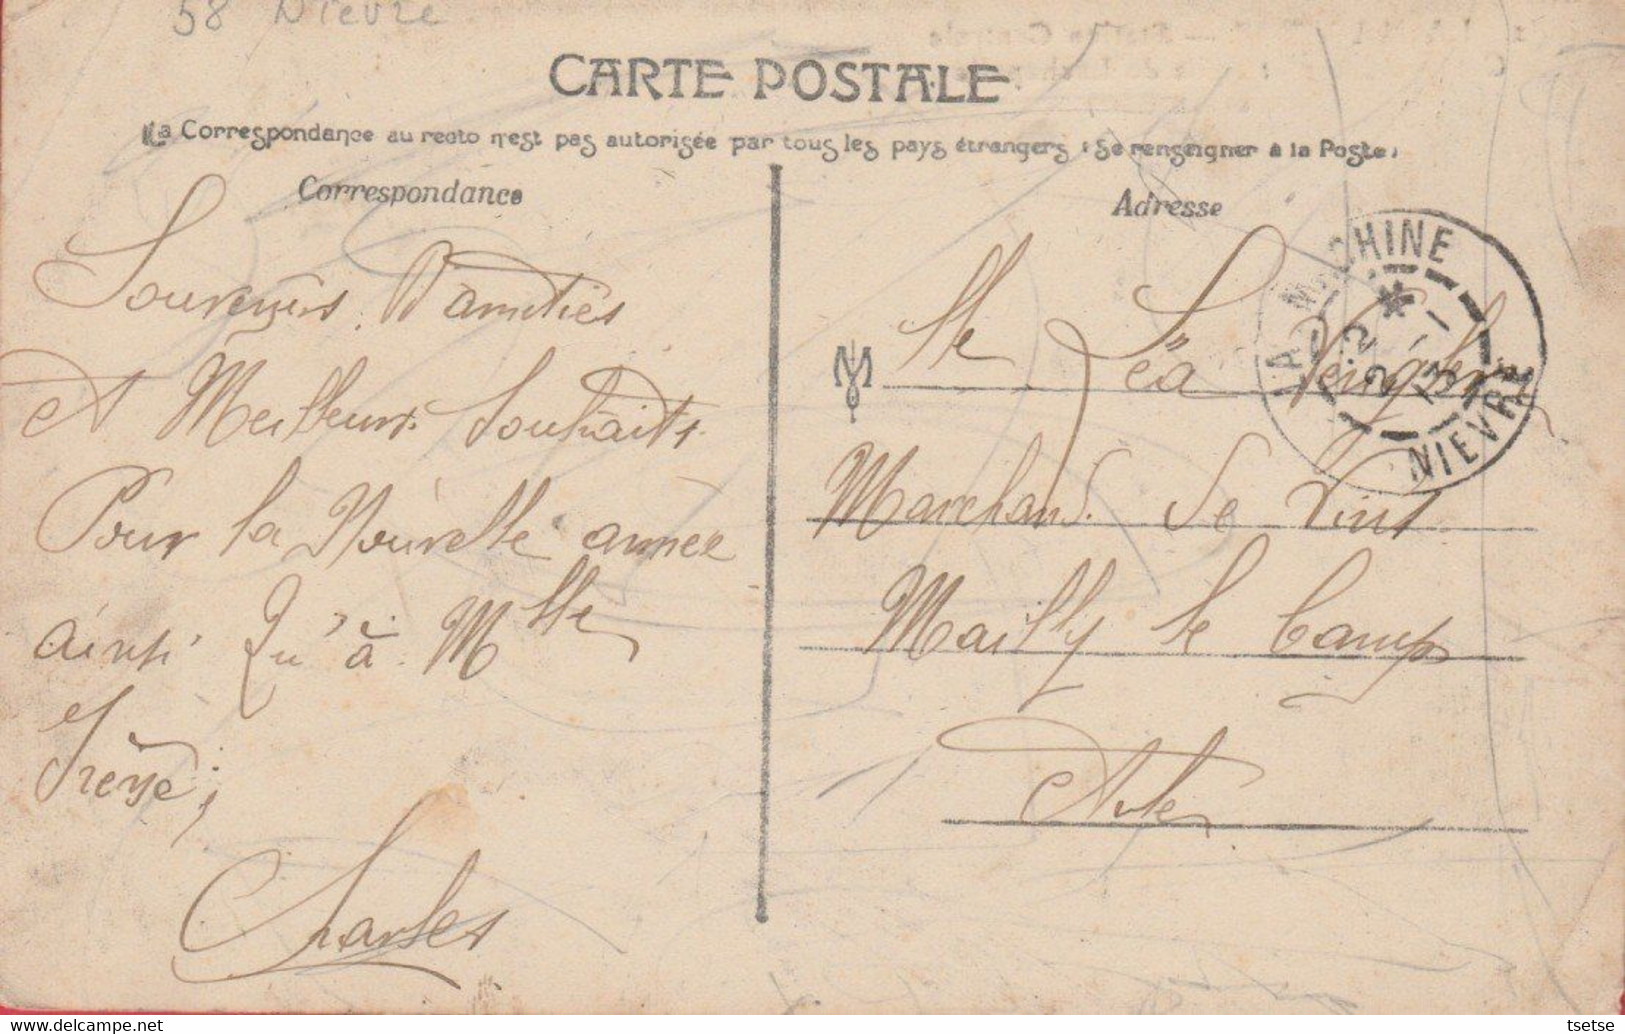 58 Nievre
CARTE POSTALE
La Correspondance au recto n'est pas autorisée par tous les pays étrangers (Se renseigner à la Poste)
Correspondance
Adresse
Souvenirs D'amitiés
Et Meilleurs Souhaits
Pour la Nouvelle année
ainsi Qu'à Mlle
Irène;
Charles
Mlle Léa
Marchand De Vins
Mailly le Camp
Aube
LA MACHINE
NIEVRE
2 - 1
13
tsetse